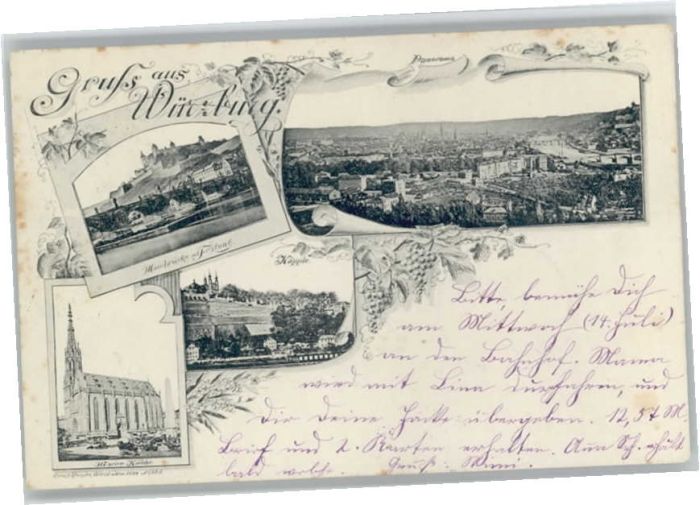 Gruss aus
Würzburg.
Panorama
Festung
Käppele
Marien Kirche
Bitte, bemühe Dich
am Mittwoch (14. Juli)
an den Bahnhof. Mama
wird mit Lina durchfahren, und
Dir Deine Jacke übergeben. 12,54 M
Brief und 2. Karten erhalten. Anna Sch. erhält
bald welche. Gruß: Mimi.